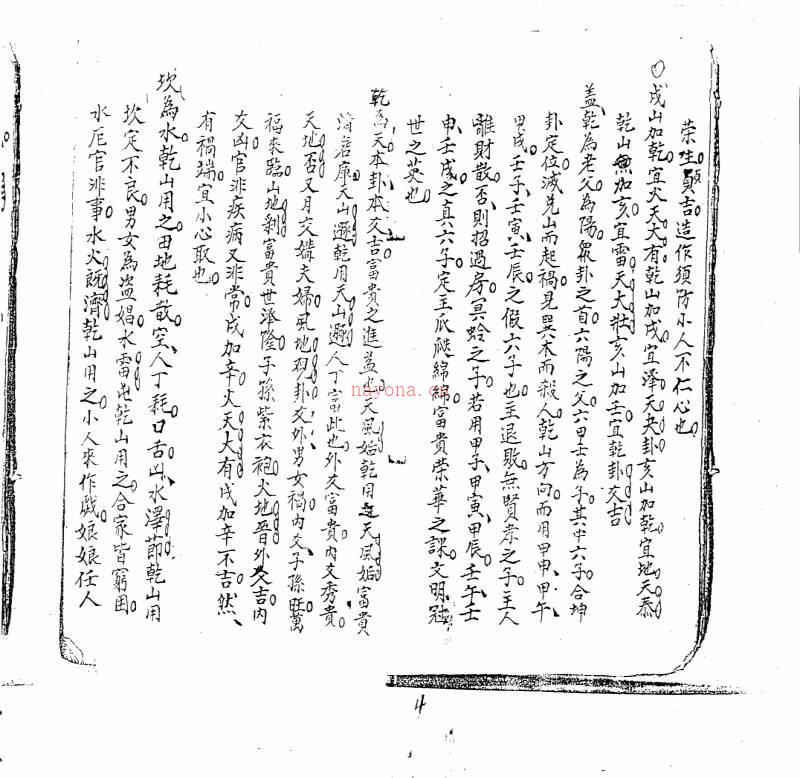 荣生貭吉。造作須防小人不仁心也。
○戌山加乾。宜火天大有。乾山加戌。宜泽天夬卦。亥山加乾。宜地天泰。
乾山無加亥。宜雷天大壯。亥山加壬。宜乾卦爻吉。
盖乾為老父為陽。眾卦之首。六陽之父。六甲士為子。其中六子合坤
卦定位。滅兑山而起禍。見巽木而殺人。乾山方向而用甲申、甲午、
甲戌、壬子、壬寅、壬辰之假六子也。主退敗。無賢孝之子。主人
離財散。否則招過房冥蛉之子。若用甲子、甲寅、甲辰、壬午、壬
申、壬戌之真六子。定主瓜瓞綿綿。富貴荣華之課。文明冠
世之英也。
乾為天本卦本爻吉。富貴之進益也。天風姤乾用之天風姤富貴
滿倉庫。天山遯乾用天山遯。人丁富此也。外爻富貴。内爻秀貴。
天地否。又月交媾夫婦。風地观卦爻。外男女禍。内爻子孫旺。萬
福來臨。山地剝富貴世澄隆。子孫紫衣袍。火地晉外爻吉。内
爻凶。官非疾病又非常。戌加辛火天大有。戌加辛不吉。然、
有禍端。宜小心取也。
坎為水。乾山用之田地耗散空。人丁耗。口舌凶。水澤節。乾山用
坎定不良。男女為盗娼。水雷屯。乾山用之。合家皆窮困。
水厄官非事。水火既濟。乾山用之。小人來作戲。娘娘任人
nayona.cn
4